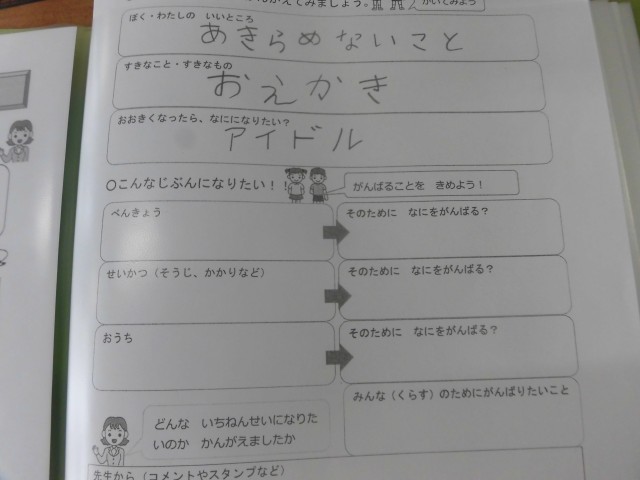 かんがえてみましょう。
かいてみよう
ぼく・わたしの いいところ
あきらめないこと
すきなこと・すきなもの
おえかき
おおきくなったら、なにになりたい?
アイドル
○こんなじぶんになりたい!
がんばることを きめよう!
べんきょう
そのために なにをがんばる?
せいかつ(そうじ、かかりなど)
そのために なにをがんばる?
おうち
そのために なにをがんばる?
みんな(くらす)のためにがんばりたいこと
どんな いちねんせいになりた
いのか かんがえましたか
先生から(コメントやスタンプなど)